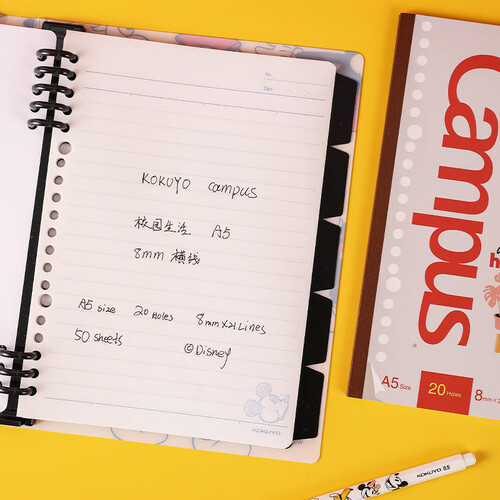 No.
Date
KOKUYO campus
校园生活 A5
8mm 横线
A5 size 20 Holes 8mm×21 Lines
50 sheets ©Disney
KOKUYO
Campus
A5 Size
20 Holes
8mm×2
KOKUYO 0.5